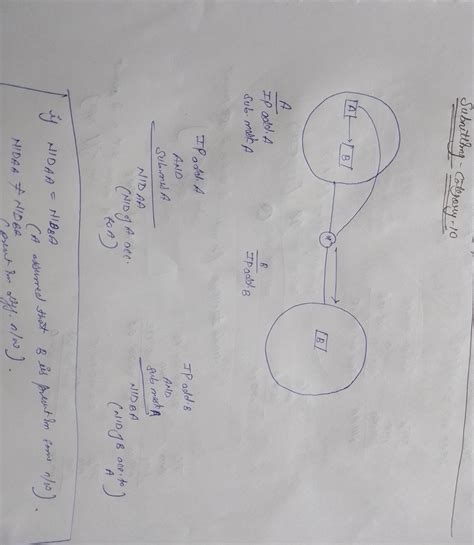 Subnetting - Category - 10
A
IP add A
Sub mask A
A
B
R
B
B
IP add B
IP add A
AND
Sub mask A
NIDAA
(NID of A acc.
to A)
IP add B
AND
Sub mask A
NIDBA
(NID of B acc. to
A)
if NIDAA = NIDBA
(A assumed that B is present in same n/w).
NIDAA ≠ NIDBA
(present in diff. n/w).